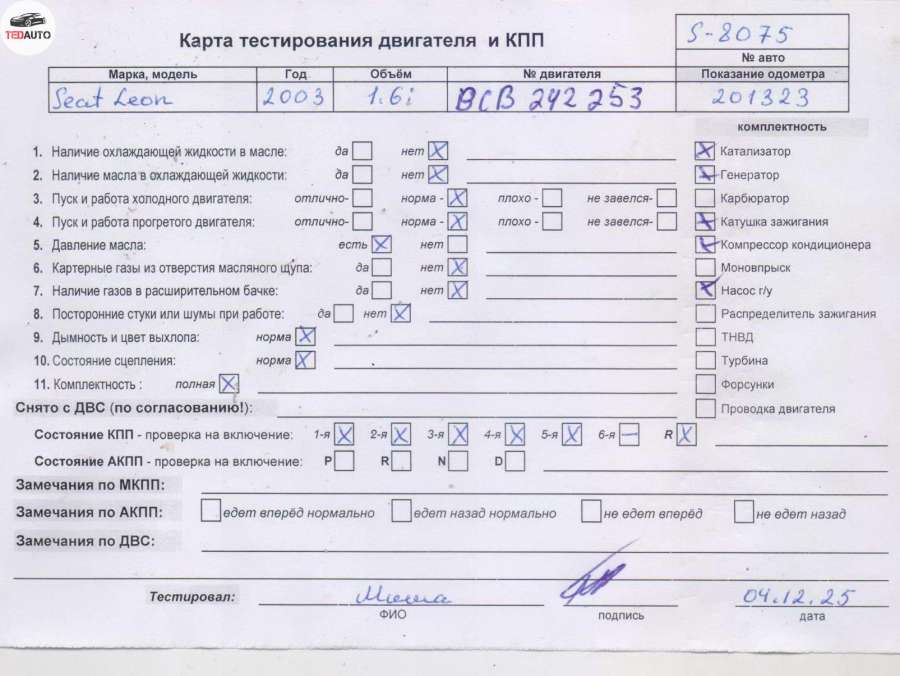 TEDAUTO
Карта тестирования двигателя и КПП
S-8075
№ авто
Марка, модель Год Объём № двигателя Показание одометра
Seat Leon 2003 1.6i BCB 242 253 201323
комплектность
1. Наличие охлаждающей жидкости в масле: да нет X
X Катализатор
2. Наличие масла в охлаждающей жидкости: да нет X
X Генератор
3. Пуск и работа холодного двигателя: отлично- норма - X плохо - не завелся-
Карбюратор
4. Пуск и работа прогретого двигателя: отлично- норма - X плохо - не завелся-
X Катушка зажигания
5. Давление масла: есть X нет
X Компрессор кондиционера
6. Картерные газы из отверстия масляного щупа: да нет X
Моновпрыск
7. Наличие газов в расширительном бачке: да нет X
X Насос г/у
8. Посторонние стуки или шумы при работе: да нет X
Распределитель зажигания
9. Дымность и цвет выхлопа: норма X
ТНВД
10. Состояние сцепления: норма X
Турбина
11. Комплектность : полная X
Форсунки
Снято с ДВС (по согласованию!):
Проводка двигателя
Состояние КПП - проверка на включение: 1-я X 2-я X 3-я X 4-я X 5-я X 6-я — R X
Состояние АКПП - проверка на включение: P R N D
Замечания по МКПП:
Замечания по АКПП: едет вперёд нормально едет назад нормально не едет вперёд не едет назад
Замечания по ДВС:
Тестировал: Миша 04.12.25
ФИО подпись дата